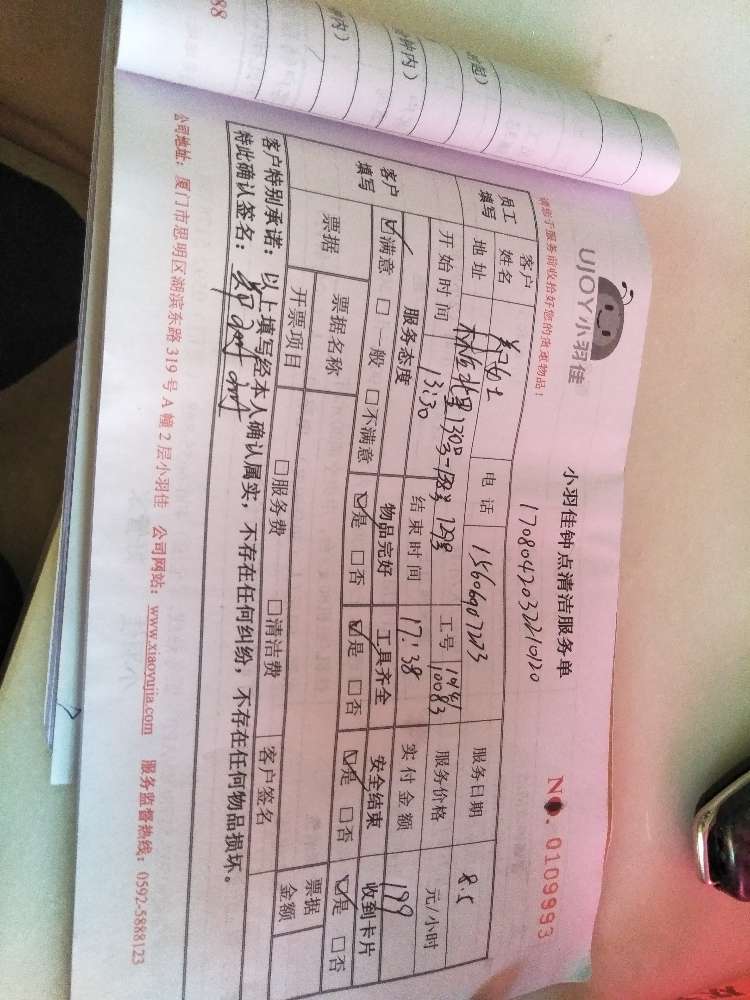 88
钟内）
UJOY小羽佳
小羽佳钟点清洁服务单
NO. 0109993
请您于服务前收拾好您的贵重物品！
170804203221020
员工填写
客户姓名
电话 15606907223
服务日期 8.5
地址
工号 10083
服务价格 元/小时
开始时间 13:30
结束时间 17:38
实付金额 199
客户填写
服务态度 物品完好 工具齐全 安全结束 收到卡片
☑满意 □一般 □不满意 ☑是 □否 ☑是 □否 ☑是 □否 ☑是 □否
票据
票据名称 □服务费 □清洁费
开票项目
客户签名
票据金额
客户特别承诺：以上填写经本人确认属实，不存在任何纠纷，不存在任何物品损坏。
特此确认签名：
公司地址：厦门市思明区湖滨东路319号A幢2层小羽佳 公司网站：www.xiaoyujia.com 服务监督热线：0592-5888123